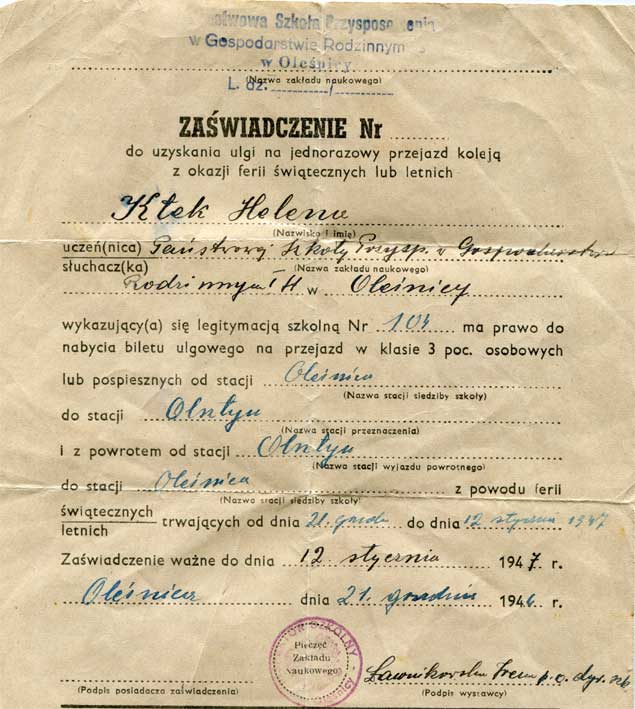 Państwowa Szkoła Przysposobienia
w Gospodarstwie Rodzinnym
w Oleśnicy
(Nazwa zakładu naukowego)
L. dz. /
ZAŚWIADCZENIE Nr
do uzyskania ulgi na jednorazowy przejazd koleją
z okazji ferii świątecznych lub letnich
Kłek Helena
(Nazwisko i imię)
uczeń(nica) Państwowej Szkoły Przysp. w Gospodarstwie
słuchacz(ka) (Nazwa zakładu naukowego)
Rodzinnym w Oleśnicy
wykazujący(a) się legitymacją szkolną Nr 104 ma prawo do
nabycia biletu ulgowego na przejazd w klasie 3 poc. osobowych
lub pospiesznych od stacji Oleśnica
(Nazwa stacji siedziby szkoły)
do stacji
(Nazwa stacji przeznaczenia)
i z powrotem od stacji
(Nazwa stacji wyjazdu powrotnego)
do stacji Oleśnica z powodu ferii
(Nazwa stacji siedziby szkoły)
świątecznych
letnich trwających od dnia 21. grudn do dnia 12 styczeń 1947
Zaświadczenie ważne do dnia 12 stycznia 1947 r.
Oleśnica dnia 21. grudzień 1946 r.
SZKOLNY
Pieczęć
Zakładu
Naukowego
p. o. dyr.
(Podpis posiadacza zaświadczenia) (Podpis wystawcy)